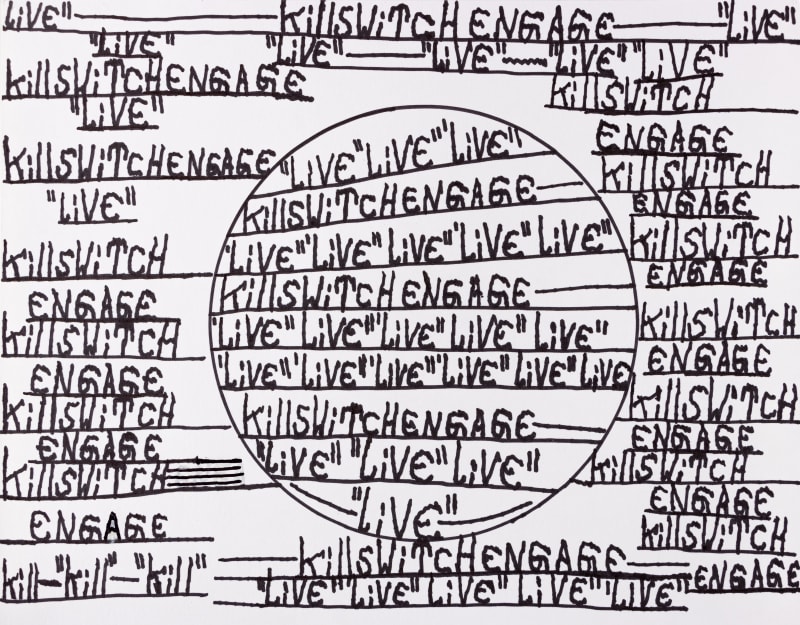 LiVE" KillSWiTCH ENGAGE "LiVE"
"LiVE" "LiVE" "LiVE" "LiVE" "LiVE"
KillSWiTCHENGAGE
KillSWiTCH
"LiVE"
KillSWiTCHENGAGE
"LiVE"
KillSWiTCH
ENGAGE
KillSWiTCH
ENGAGE
KillSWiTCH
ENGAGE
KillSWiTCH
ENGAGE
Kill—"Kill"—"Kill"
"LiVE" LiVE" "LiVE"
KillSWiTCHENGAGE
"LiVE" "LiVE" "LiVE" "LiVE" LiVE"
KillSWiTCHENGAGE
"LiVE" LiVE" "LiVE" LiVE" LiVE"
"LiVE" "LiVE" "LiVE" "LiVE" "LiVE" LiVE
KillSWiTCHENGAGE
"LiVE" "LiVE" LiVE"
"LiVE"
ENGAGE
KillSWiTCH
ENGAGE
KillSWiTCH
ENGAGE
KillSWiTCH
ENGAGE
KillSWiTCH
ENGAGE
KillSWiTCH
ENGAGE
KillSWiTCH
ENGAGE
KillSWiTCHENGAGE
"LiVE" "LiVE" LiVE" LiVE" "LiVE"